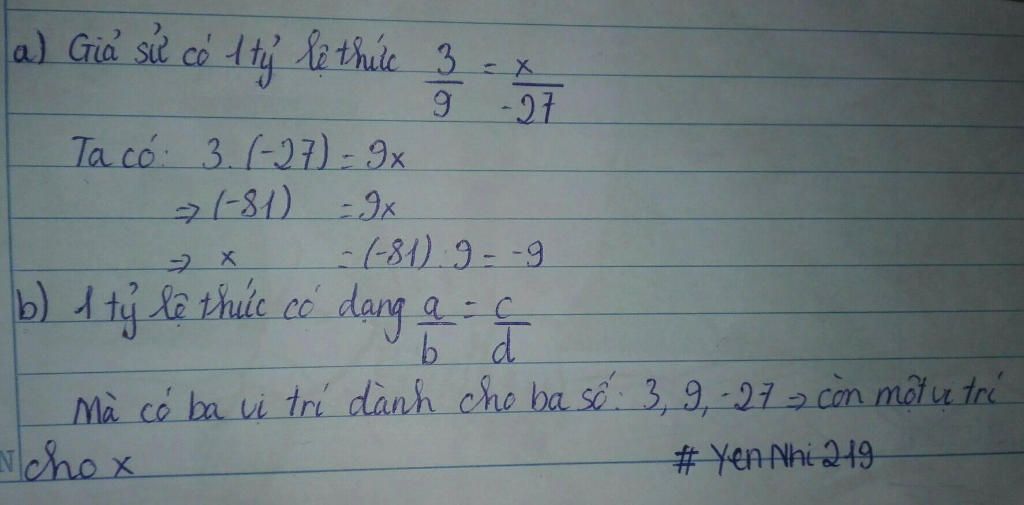 a) Giả sử có 1 tỷ lệ thức 3/9 = x/-27
Ta có: 3.(-27) = 9x
=> (-81) = 9x
=> x = (-81) : 9 = -9
b) 1 tỷ lệ thức có dạng a/b = c/d
Mà có ba vị trí dành cho ba số: 3, 9, -27 => còn một vị trí
cho x
# YenNhi219